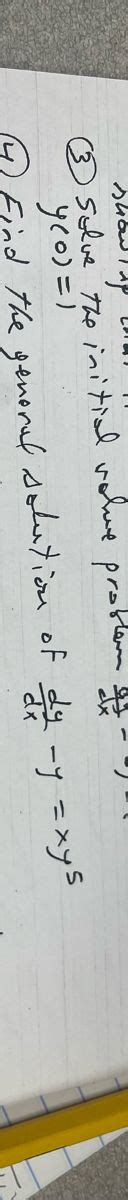 showing that
③ Solve the initial value problem dy/dx -
y(0) = 1
④ Find the general solution of dy/dx - y = xy⁵